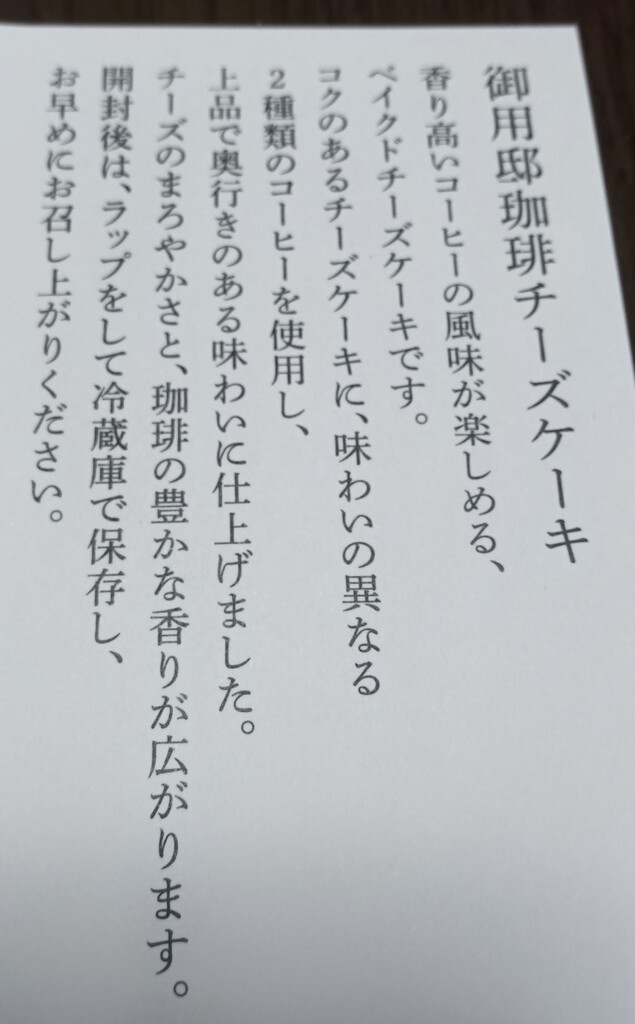 御用邸珈琲チーズケーキ
香り高いコーヒーの風味が楽しめる、
ベイクドチーズケーキです。
コクのあるチーズケーキに、味わいの異なる
2種類のコーヒーを使用し、
上品で奥行きのある味わいに仕上げました。
チーズのまろやかさと、珈琲の豊かな香りが広がります。
開封後は、ラップをして冷蔵庫で保存し、
お早めにお召し上がりください。